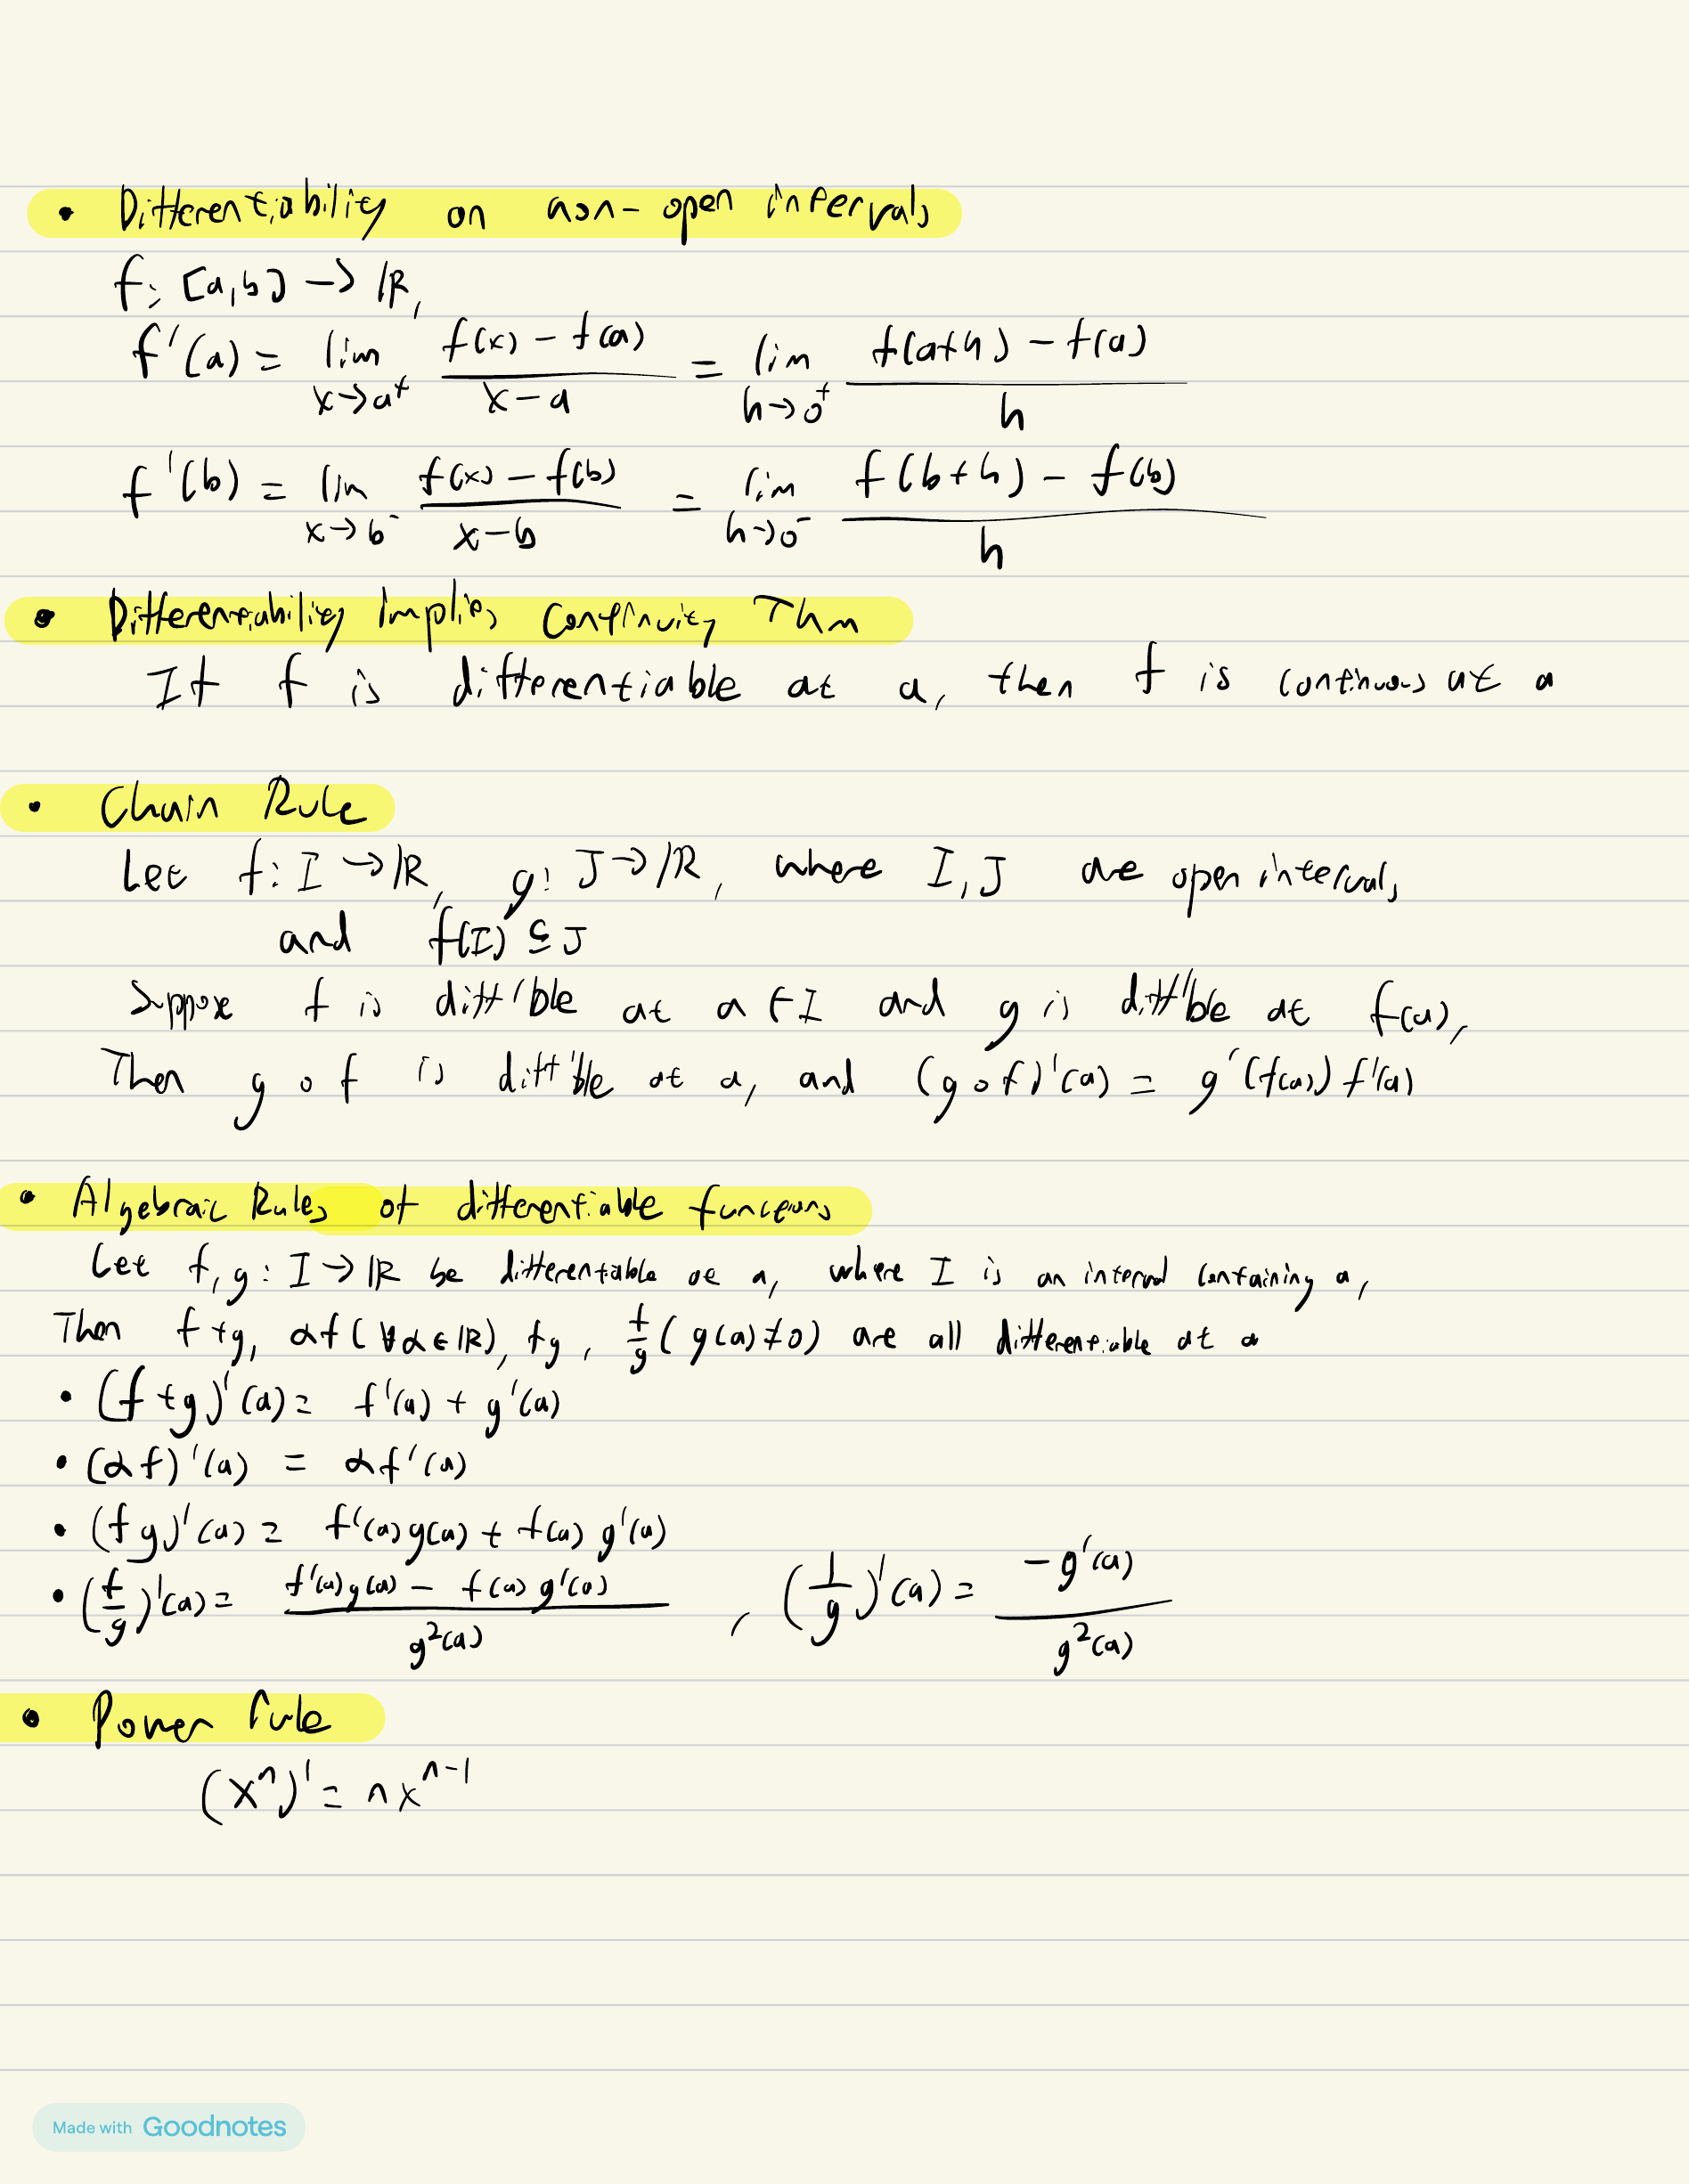 • Differentiability on non-open intervals
f: [a,b] → ℝ,
f'(a) = lim x→a⁺ (f(x) - f(a))/(x-a) = lim h→0⁺ (f(a+h) - f(a))/h
f'(b) = lim x→b⁻ (f(x) - f(b))/(x-b) = lim h→0⁻ (f(b+h) - f(b))/h
• Differentiability implies continuity Thm
If f is differentiable at a, then f is continuous at a
• Chain Rule
Let f: I → ℝ, g: J → ℝ, where I, J are open intervals
and f(I) ⊆ J
Suppose f is diff'ble at a ∈ I and g is diff'ble at f(a),
Then g ∘ f is diff'ble at a, and (g ∘ f)'(a) = g'(f(a)) f'(a)
• Algebraic Rules of differentiable functions
Let f, g: I → ℝ be differentiable at a, where I is an interval containing a,
Then f+g, αf (∀α∈ℝ), fg, f/g (g(a)≠0) are all differentiable at a
• (f+g)'(a) = f'(a) + g'(a)
• (αf)'(a) = αf'(a)
• (fg)'(a) = f'(a)g(a) + f(a)g'(a)
• (f/g)'(a) = (f'(a)g(a) - f(a)g'(a))/g²(a) , (1/g)'(a) = -g'(a)/g²(a)
• Power rule
(xⁿ)' = nxⁿ⁻¹
Made with Goodnotes